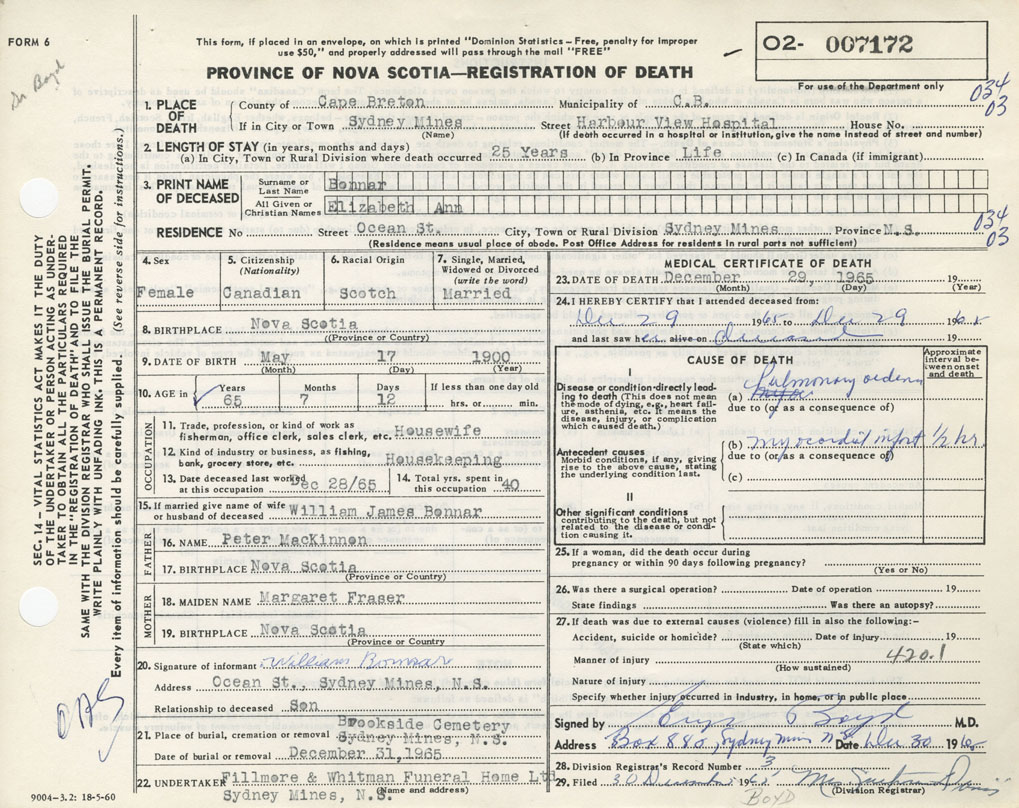 FORM 6
This form, if placed in an envelope, on which is printed "Dominion Statistics - Free, penalty for improper
use $50," and properly addressed will pass through the mail "FREE"
PROVINCE OF NOVA SCOTIA—REGISTRATION OF DEATH
02- 007172
For use of the Department only
Dr Boyd
034
03
1. PLACE OF DEATH
County of Cape Breton Municipality of C.B.
If in City or Town Sydney Mines Street Harbour View Hospital House No.
(Name) (If death occurred in a hospital or institution, give the name instead of street and number)
2. LENGTH OF STAY (in years, months and days)
(a) In City, Town or Rural Division where death occurred 25 Years (b) In Province Life (c) In Canada (if immigrant)
3. PRINT NAME OF DECEASED
Surname or Last Name Bonnar
All Given or Christian Names Elizabeth Ann
034
03
RESIDENCE No Street Ocean St. City, Town or Rural Division Sydney Mines Province N.S.
(Residence means usual place of abode. Post Office Address for residents in rural parts not sufficient)
4. Sex
Female
5. Citizenship (Nationality)
Canadian
6. Racial Origin
Scotch
7. Single, Married, Widowed or Divorced (write the word)
Married
8. BIRTHPLACE Nova Scotia
(Province or Country)
9. DATE OF BIRTH May 17 1900
(Month) (Day) (Year)
10. AGE in Years Months Days If less than one day old
65 7 12 hrs. or min.
OCCUPATION
11. Trade, profession, or kind of work as
fisherman, office clerk, sales clerk, etc. Housewife
12. Kind of industry or business, as fishing,
bank, grocery store, etc. Housekeeping
13. Date deceased last worked at this occupation Dec 28/65
14. Total yrs. spent in this occupation 40
15. If married give name of wife
or husband of deceased William James Bonnar
FATHER
16. NAME Peter MacKinnon
17. BIRTHPLACE Nova Scotia
(Province or Country)
MOTHER
18. MAIDEN NAME Margaret Fraser
19. BIRTHPLACE Nova Scotia
(Province or Country
20. Signature of informant William Bonnar
Address Ocean St., Sydney Mines, N.S.
Relationship to deceased Son
21. Place of burial, cremation or removal Brookside Cemetery
Sydney Mines, N.S.
Date of burial or removal December 31,1965
22. UNDERTAKER Fillmore & Whitman Funeral Home Ltd
Sydney Mines, N.S. (Name and address)
MEDICAL CERTIFICATE OF DEATH
23. DATE OF DEATH December 29, 1965 19
(Month) (Day) (Year)
24. I HEREBY CERTIFY that I attended deceased from:
Dec 29 1965 to Dec 29 1965
and last saw her alive on deceased
CAUSE OF DEATH
Approximate interval between onset and death
I
Disease or condition directly leading to death (This does not mean the mode of dying, e.g., heart failure, asthenia, etc. It means the disease, injury, or complication which caused death.)
(a) Pulmonary oedema
due to (or as a consequence of)
Antecedent causes
Morbid conditions, if any, giving rise to the above cause, stating the underlying condition last.
(b) myocardial infarct 1/2 hr.
due to (or as a consequence of)
(c)
II
Other significant conditions
contributing to the death, but not related to the disease or condition causing it.
25. If a woman, did the death occur during
pregnancy or within 90 days following pregnancy?
(Yes or No)
26. Was there a surgical operation? Date of operation 19
State findings Was there an autopsy?
27. If death was due to external causes (violence) fill in also the following:-
Accident, suicide or homicide? Date of injury 19
(State which)
Manner of injury 420.1
(How sustained)
Nature of injury
Specify whether injury occurred in industry, in home, or in public place
Signed by Boyd M.D.
Address Box 880, Sydney Mines NS Date Dec 30 1965
28. Division Registrar's Record Number 3
29. Filed 30 December 1965
(Division Registrar)
BOYD
9004-3.2: 18-5-60
SEC. 14—VITAL STATISTICS ACT MAKES IT THE DUTY
OF THE UNDERTAKER OR PERSON ACTING AS UNDER-
TAKER TO OBTAIN ALL THE PARTICULARS REQUIRED
IN THE "REGISTRATION OF DEATH" AND TO FILE THE
SAME WITH THE DIVISION REGISTRAR WHO SHALL ISSUE THE BURIAL PERMIT.
WRITE PLAINLY WITH UNFADING INK—THIS IS A PERMANENT RECORD.
Every item of information should be carefully supplied. (See reverse side for instructions.)